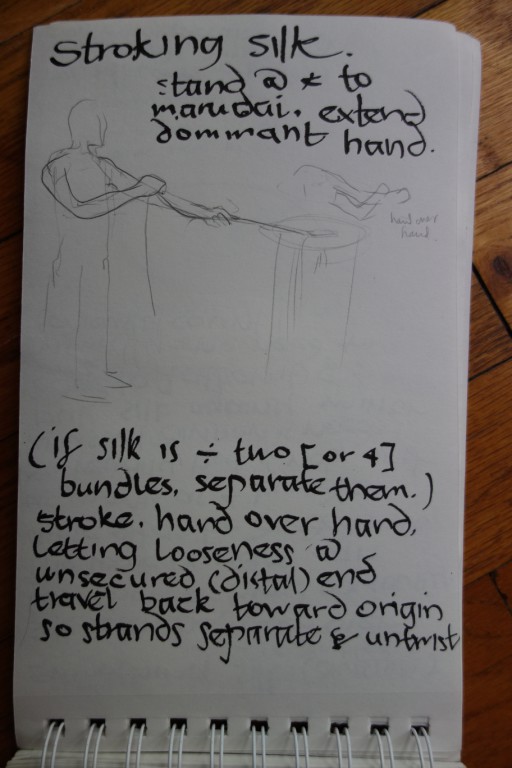 Stroking silk.
stand @ ⦟ to
marudai. extend
dominant hand.
hand over
hand.
(if silk is ÷ two [or 4]
bundles, separate them.)
stroke, hand over hand,
letting looseness @
unsecured (distal) end
travel back toward origin
so strands separate & untwist